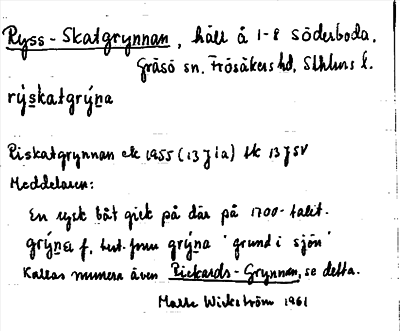 Ryss-Skatgrynnan, häll å 1-8 Söderboda.
Gräsö sn. Frösåkers hd, Sthlms l.
rýskatgrýna
Riskatgrynnan ek 1955 (13 J 1a) tk 13 J SV
Meddelaren:
En rysk båt gick på där på 1700-talet.
grýna f, best. form grýna "grund i sjön"
Kallas numera även Rickards-Grynnan, se detta.
Wickström 1961